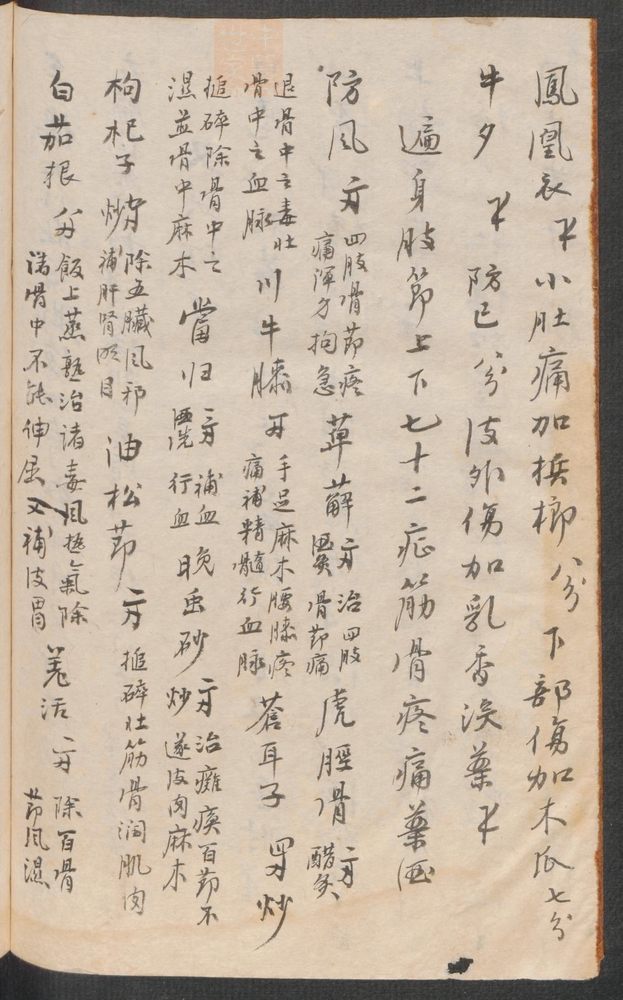 鳳凰衣 小肚痛加梹榔 分 下部傷加木瓜七分
牛夕 防已 分 皮外傷加乳香没藥
遍身肢節上下七十二症筋骨疼痛藥酒
防風 四肢骨節疼痛渾身拘急 萆薢 治四肢骨節痛 虎脛骨 醋炙
退骨中之毒壮骨中之血脉 川牛膝 手足麻木腰膝疼痛補精髓行血脉 蒼耳子 炒
搥碎除骨中之濕並骨中麻木 當归 酒洗 補血行血 晚蚕砂 炒 治癱瘓百節不遂皮肉麻木
枸杞子 炒 除五臟風邪補肝腎 目 油松節 搥碎壮筋骨潤肌肉
白茄根 飯上蒸熟治諸毒風 氣除 骨中不能伸屈又補皮胃 羗活 除百骨節風濕